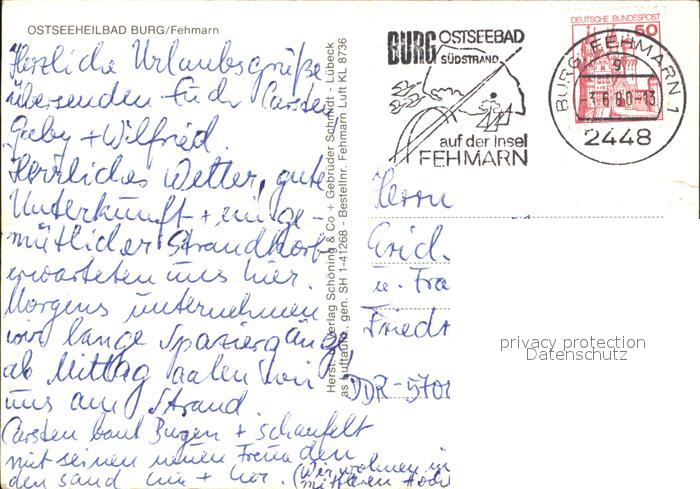 OSTSEEHEILBAD BURG/Fehmarn
Herzliche Urlaubsgrüße
übersenden Euch Carsten
Gaby + Wilfried.
Herrliches Wetter, gute
Unterkunft + ein ge-
mütlicher Strandkorb
erwarteten uns hier.
Morgens unternehmen
wir lange Spaziergänge,
ab Mittag aalen wir
uns am Strand.
Carsten baut Burgen + schaufelt
mit seinen neuen Freunden
den Sand hin + her. (Wir wohnen im
mittleren
Herst. u. Verlag Schöning & Co + Gebrüder Schmidt - Lübeck
as Luftaufn. gen. SH 1-41268 - Bestellnr. Fehmarn Luft KL 8736
BURG OSTSEEBAD
SÜDSTRAND
auf der Insel
FEHMARN
DEUTSCHE BUNDESPOST
50
BURG, FEHMARN 1
6.80-13
2448
Herrn
Erich
u. Fra
Friedr
DDR-5701
privacy protection
Datenschutz